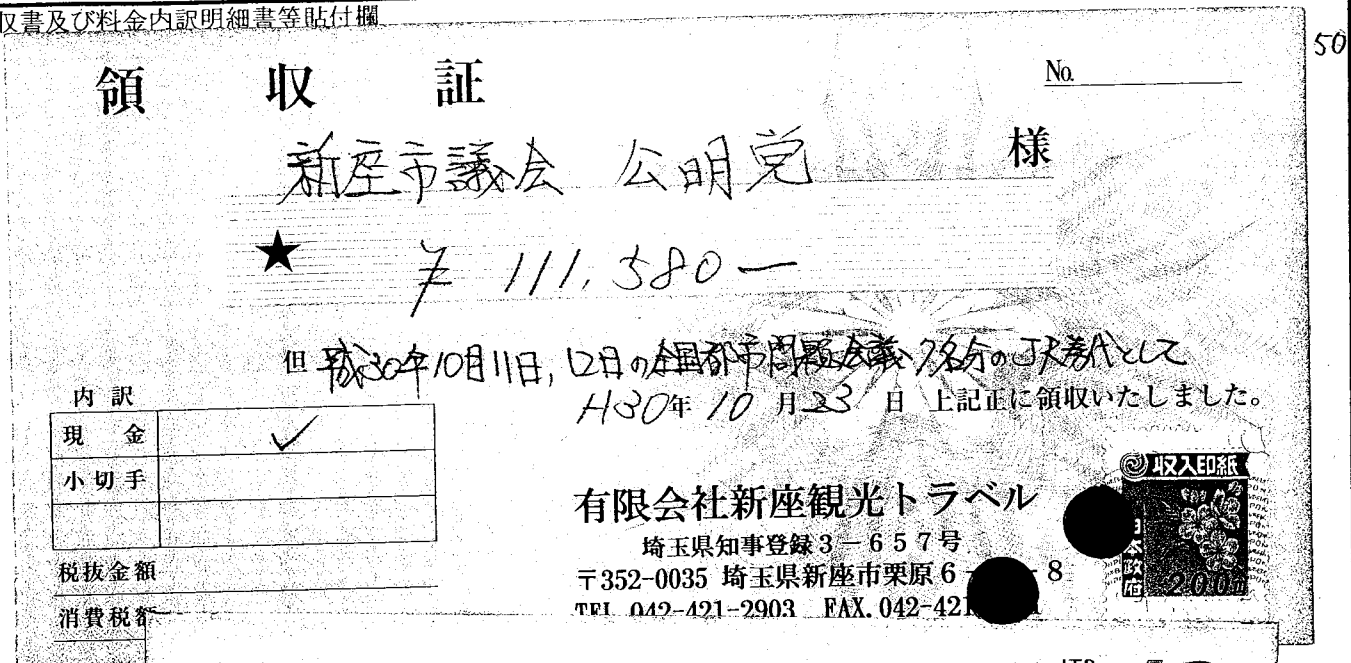 収書及び料金内訳明細書等貼付欄
50
領収証
No.
新座市議会 公明党 様
★ ¥111,580-
但 平成30年10月11日,12日の全国都市問題会議 7名分のJR券代として
H30年10月23日 上記正に領収いたしました。
内訳
現金 ✓
小切手
税抜金額
消費税額
有限会社新座観光トラベル
埼玉県知事登録3-657号
〒352-0035 埼玉県新座市栗原6 8
TEL 042-421-2903 FAX. 042-421
収入印紙
200